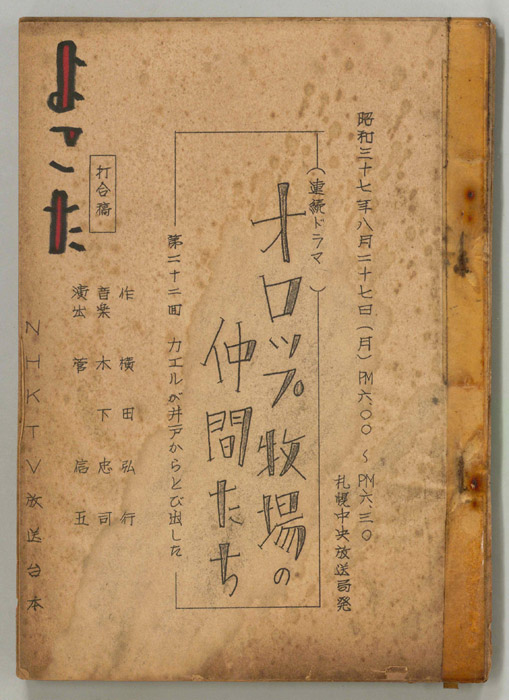 昭和三十七年八月二十七日(月)PM六.〇〇~PM六.三〇
札幌中央放送局発
(連続ドラマ)
オロップ牧場の
仲間たち
第二十二回 カエルが井戸からとび出した
作 横田弘行
音楽 木下忠司
演出 菅信五
打合稿
よこた
NHKTV放送台本